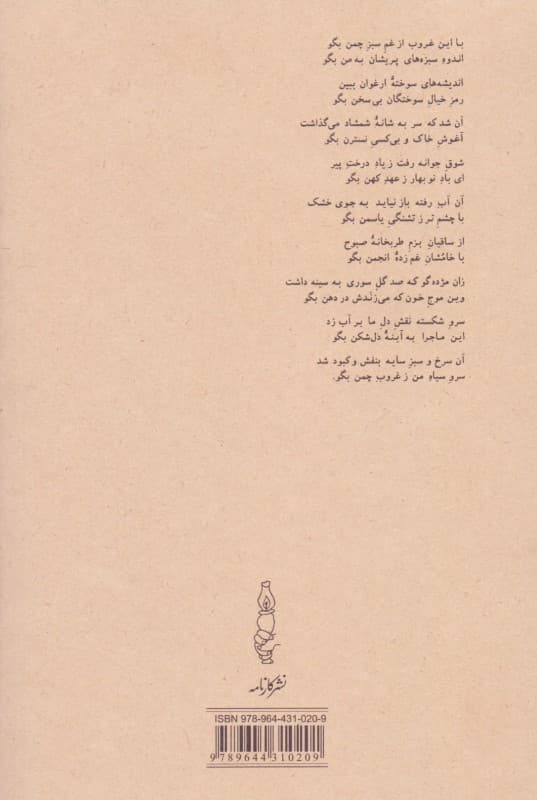 با این غروب از غم سبز چمن بگو
اندوهِ سبزه‌های پریشان به من بگو
اندیشه‌های سوختهٔ ارغوان ببین
رمزِ خیالِ سوختگان بی‌سخن بگو
آن شد که سر به شانهٔ شمشاد می‌گذاشت
آغوشِ خاک و بی‌کسیِ نسترن بگو
شوقِ جوانه رفت ز یادِ درختِ پیر
ای بادِ نوبهار ز عهدِ کهن بگو
آن آبِ رفته باز نیاید به جوی خشک
با چشمِ تر ز تشنگیِ یاسمن بگو
از ساقیانِ بزمِ طربخانهٔ صبوح
با خامُشانِ غم زدهٔ انجمن بگو
زان مژده‌گو که صد گلِ سوری به سینه داشت
وین موجِ خون که می‌زندش در دهن بگو
سروِ شکسته نقشِ دلِ ما بر آب زد
این ماجرا به آینهٔ دل‌شکن بگو
آن سرخ و سبزِ سایه بنفش و کبود شد
سروِ سیاهِ من ز غروبِ چمن بگو.
نشر کارنامه
ISBN 978-964-431-020-9
9789644310209